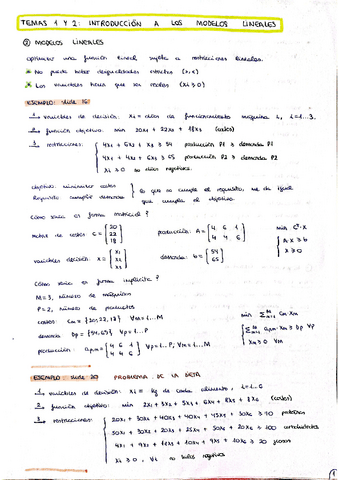 TEMAS 1 Y 2: INTRODUCCIÓN A LOS MODELOS LINEALES
② MODELOS LINEALES
optimizar una función lineal sujeta a restricciones lineales.
No puede haber desigualdades estrictas (>,<)
Las variables tienen que ser reales (xi≥0)
EJEMPLO: slide 16:
1 variables de decisión: xi = días de funcionamiento máquina i, i=1...3.
2 función objetivo: min 20x1 + 22x2 + 18x3 (costes)
3 restricciones:
4x1 + 6x2 + x3 ≥ 54 producción P1 ≥ demanda P1
4x1 + 4x2 + 6x3 ≥ 65 producción P2 ≥ demanda P2
xi ≥ 0 no días negativos.
objetivo: minimizar costes
requisito: cumplir demanda
lo que no cumple el requisito, me da igual
que cumpla el objetivo.
Cómo sería en forma matricial?
costes C = [20 22 18] producción: A = [4 6 1 4 4 6] min Cᵗ·X
A·x ≥ b
x ≥ 0
variables decisión: x = [x1 x2 x3] demanda: b = [54 65]
Cómo sería en forma implícita?
M=3, número de máquinas
P=2, número de productos
costes: Cm = {20,22,18} ∀m=1...M
demanda Dp = {54,65} ∀p=1...P
producción: apm = {4 6 1 4 4 6} ∀p=1...P, ∀m=1...M
EJEMPLO slide 20 PROBLEMA DE LA DIETA
1 variables de decisión: xi = kg de cada alimento, i=1...6
2 función objetivo: min 2x1 + 3x2 + 5x3 + 6x4 + 8x5 + 8x6 (costes)
3 restricciones:
20x1 + 30x2 + 40x3 + 40x4 + 45x5 + 30x6 ≥ 70 proteínas
50x1 + 30x2 + 20x3 + 25x4 + 50x5 + 20x6 ≥ 100 carbohidratos
xi ≥ 0, ∀i